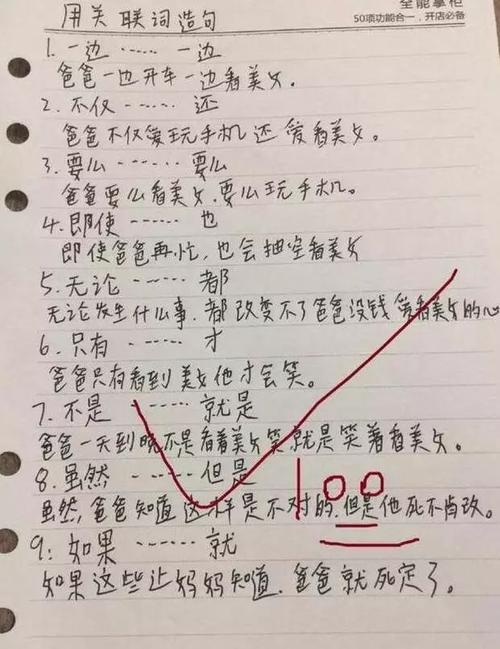 全能掌柜
50项功能合一，开店必备
用关联词造句
1. 一边 …… 一边
爸爸一边开车一边看美女.
2. 不仅 …… 还
爸爸不仅爱玩手机还爱看美女。
3. 要么 …… 要么
爸爸要么看美女.要么玩手机。
4. 即使 …… 也
即使爸爸再忙，也会抽空看美女
5. 无论 …… 都
无论发生什么事.都改变不了爸爸没钱爱看美女的心
6. 只有 …… 才
爸爸只有看到美女他才会笑。
7. 不是 …… 就是
爸爸一天到晚不是看着美女笑就是笑着看美女。
8. 虽然 …… 但是
虽然,爸爸知道这样是不对的.但是他死不肯改。
9: 如果 …… 就
如果这些让妈妈知道.爸爸就死定了。
100